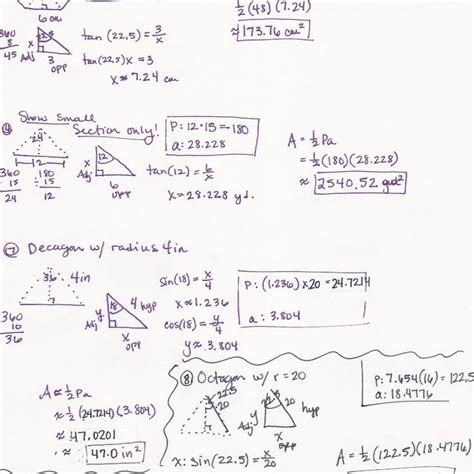 6cm
360
8
45
x
22.5
Adj
3
opp
tan (22.5) = 3/x
tan(22.5)x = 3
x ≈ 7.24 cm
½(48)(7.24)
≈ 173.76 cm²
⑥ Show Small
Section only!
24
12
360
15
24
180
÷ 15
12
x
12
Adj
6
opp
P: 12·15 = 180
a: 28.228
tan(12) = 6/x
x = 28.228 yd.
A = ½Pa
= ½(180)(28.228)
≈ 2540.52
⑦ Decagon w/ radius 4in
36
4in
?
360
10
36
y
18
4 hyp
Adj
x
opp
sin(18) = x/4
x ≈ 1.236
cos(18) = y/4
y ≈ 3.804
P: (1.236) x 20 = 24.7214
a: 3.804
A ≈ ½Pa
≈ ½(24.7214)(3.804)
≈ 47.0201
≈ 47.0 in²
⑧ Octagon w/ r = 20
22.5
20
y
22.5
20
hyp
Adj
x
opp
x: sin(22.5) = x/20
P: 7.654(16) = 122.5
a: 18.4776
A = ½(122.5)(18.4776)